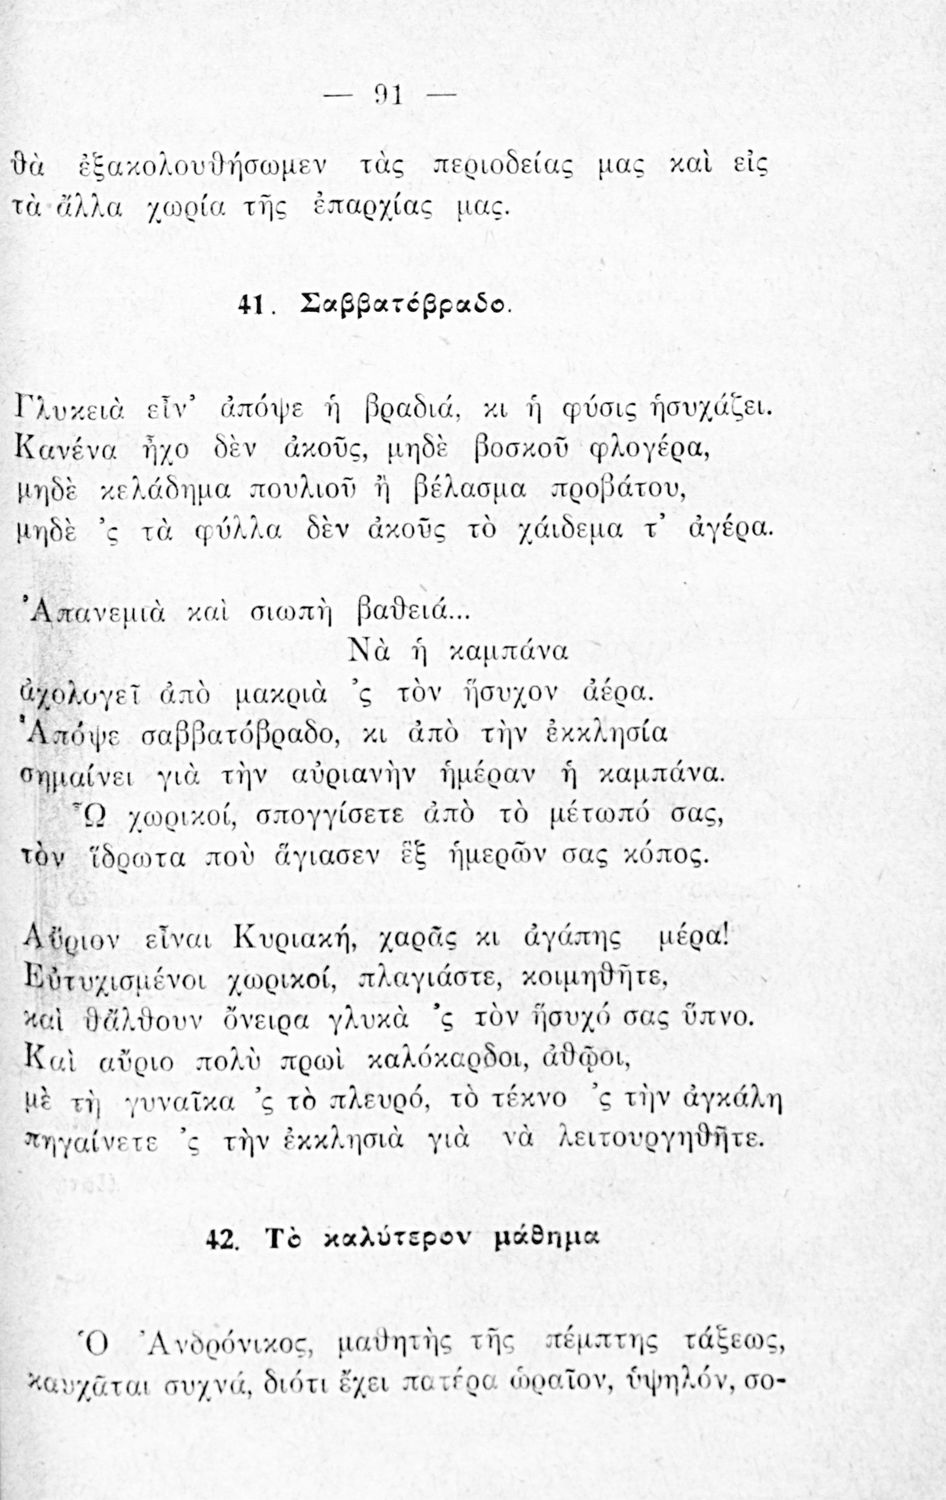 — 91 —
θὰ ἐξακολουθήσωμεν τὰς περιοδείας μας καὶ εἰς
τὰ ἄλλα χωρία τῆς ἐπαρχίας μας.
41. Σαββατόβραδο.
Γλυκειὰ εἶν’ ἀπόψε ἡ βραδιά, κι ἡ φύσις ἡσυχάζει.
Κανένα ἦχο δὲν ἀκοῦς, μηδὲ βοσκοῦ φλογέρα,
μηδὲ κελάδημα πουλιοῦ ἢ βέλασμα προβάτου,
μηδὲ ’ς τὰ φύλλα δὲν ἀκοῦς τὸ χάιδεμα τ’ ἀγέρα.
Ἀπανεμιὰ καὶ σιωπὴ βαθειά...
Νὰ ἡ καμπάνα
ἀχολογεῖ ἀπὸ μακριὰ ’ς τὸν ἥσυχον ἀέρα.
Ἀπόψε σαββατόβραδο, κι ἀπὸ τὴν ἐκκλησία
σημαίνει γιὰ τὴν αὐριανὴν ἡμέραν ἡ καμπάνα.
Ὦ χωρικοί, σπογγίσετε ἀπὸ τὸ μέτωπό σας,
τὸν ἵδρωτα ποὺ ἅγιασεν ἓξ ἡμερῶν σας κόπος.
Αὔριον εἶναι Κυριακή, χαρᾶς κι ἀγάπης μέρα!
Εὐτυχισμένοι χωρικοί, πλαγιάστε, κοιμηθῆτε,
καὶ θἄλθουν ὄνειρα γλυκὰ ’ς τὸν ἥσυχό σας ὕπνο.
Καὶ αὔριο πολὺ πρωὶ καλόκαρδοι, ἀθῷοι,
μὲ τὴ γυναῖκα ’ς τὸ πλευρό, τὸ τέκνο ’ς τὴν ἀγκάλη
πηγαίνετε ’ς τὴν ἐκκλησιὰ γιὰ νὰ λειτουργηθῆτε.
42. Τὸ καλύτερον μάθημα
Ὁ Ἀνδρόνικος, μαθητὴς τῆς πέμπτης τάξεως,
καυχᾶται συχνά, διότι ἔχει πατέρα ὡραῖον, ὑψηλόν, σο-